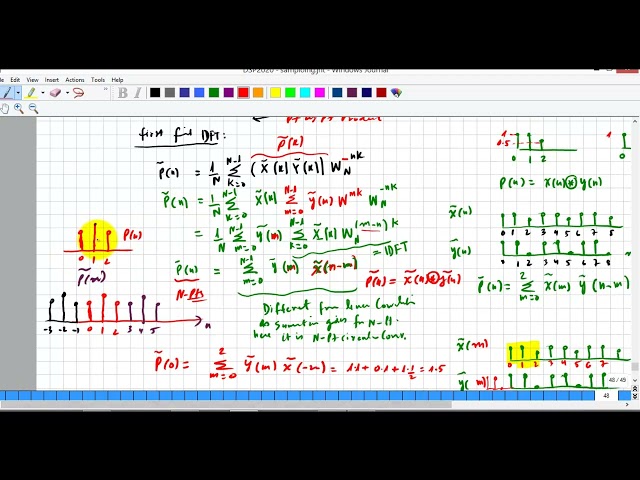 DSP2020 - sampling.jnt - Windows Journal
View Insert Actions Tools Help
B I
first find DFT:
P̃(k)
p̃(n) = 1/N Σ_{k=0}^{N-1} (X̃(k) Ỹ(k)) W_N^{-nk}
p̃(n) = 1/N Σ_{k=0}^{N-1} X̃(k) Σ_{m=0}^{N-1} ỹ(m) W^{mk} W_N^{-nk}
= 1/N Σ_{m=0}^{N-1} ỹ(m) Σ_{k=0}^{N-1} X̃(k) W_N^{(m-n)k}
= IDFT
p̃(n) = Σ_{m=0}^{N-1} ỹ(m) x̃(n-m)
N-pts
p̃(n) = x̃(n) ⊛ ỹ(n)
Different from linear Convolution
as summation goes for N-pt.
here it is N-Pt circular conv.
p̃(0) = Σ_{m=0}^{2} ỹ(m) x̃(-m) = 1·1 + 0·1 + 1·1/2 = 1.5
p(n)
0 1 2
p̃(n)
-3 -2 -1 0 1 2 3 4 5 n
1
1.5
0 1 2
1
0
p(n) = x(n) ⊛ y(n)
x̃(n)
0 1 2 3 4 5 6 7 8 9
ỹ(n)
0 1 2 3 4 5 6 7 8
p̃(n) = Σ_{m=0}^{2} x̃(m) ỹ(n-m)
x̃(m)
0 1 2 3 4 5 6 7
ỹ(m)
48 / 49
48